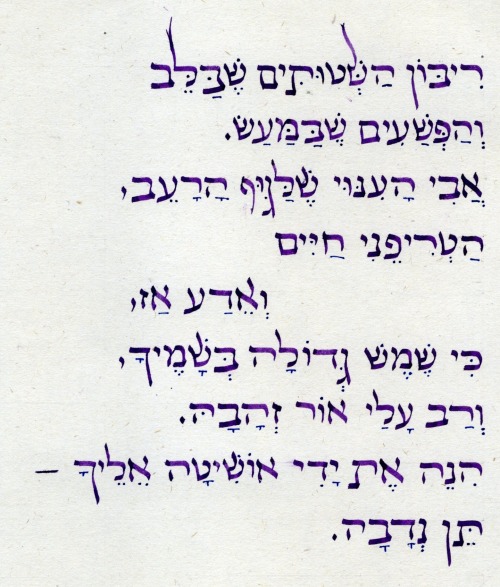 רִיבּוֹן הַשְּׁטוּתִים שֶׁבַּלֵּב
וְהַפְּשָׁעִים שֶׁבַּמַּעַשׂ.
אֲבִי הָעִנּוּי שֶׁלַּגּוּף הָרָעֵב,
הַטְרִיפֵנִי חַיִּים
וְאֵדַע אַז,
כִּי שֶׁמֶשׁ גְּדוֹלָה בְּשָׁמֶיךָ,
וְרַב עָלַי אוֹר זְהָבָהּ.
הִנֵּה אֶת יָדִי אוֹשִׁיטָה אֵלֶיךָ –
תֵּן נְדָבָה.